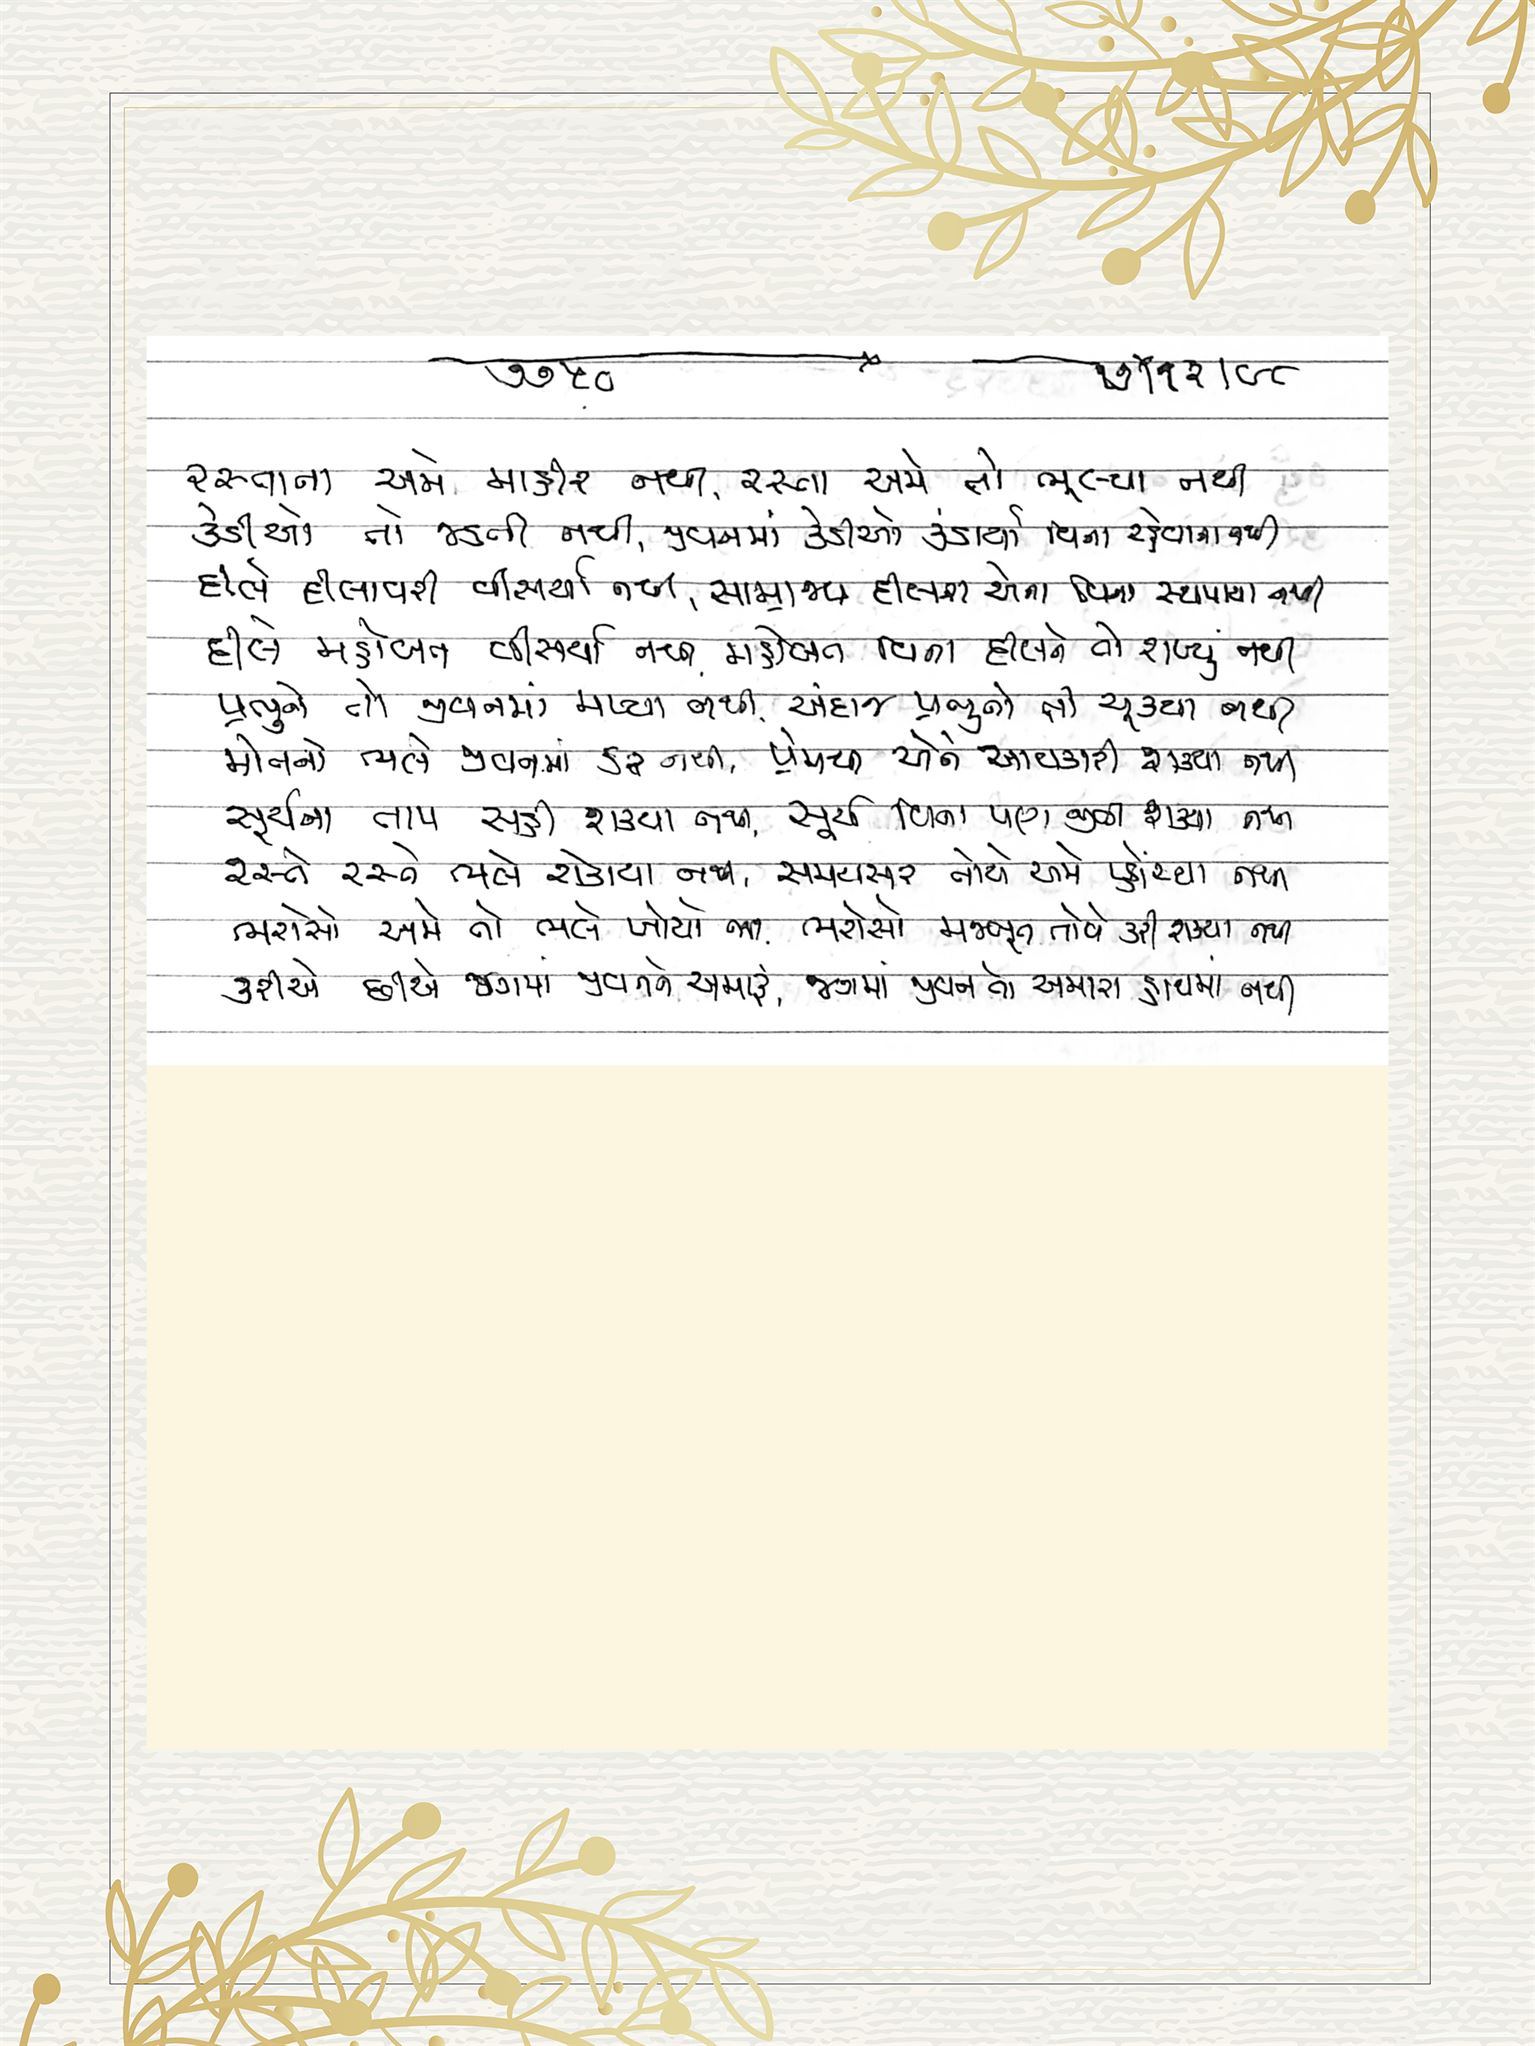 ૭૭૫૦ ૭/૧૨/૯૮
રસ્તાના અમે માહીર નથી, રસ્તા અમે તો ભૂલ્યા નથી
કેડીઓ તો જડતી નથી, જીવનમાં કેડીઓ કંડાર્યા વિના રહેવાના નથી
દીલે દીલાવરી વીસર્યા નથી, સામ્રાજ્ય દીલના એના વિના સ્થપાયા નથી
દીલે મહોબત વીસર્યા નથી, મહોબત વિના દીલને તો રાખ્યું નથી
પ્રભુને તો જીવનમાં મળ્યા નથી, અંદાજ પ્રભુનો તો ચૂક્યા નથી
મોતનો ભલે જીવનમાં ડર નથી, પ્રેમથી એને આવકારી શક્યા નથી
સૂર્યના તાપ સહી શક્યા નથી, સૂર્ય વિના પણ જીવી શક્યા નથી
રસ્તે રસ્તે ભલે રોકાયા નથી, સમયસર તોયે અમે પહોંચ્યા નથી
ભરોસો અમે તો ભલે ખોયો નથી, ભરોસો મજબૂત તોયે કરી શક્યા નથી
કરીએ છીએ જગમાં જીવનને અમારું, જગમાં જીવન તો અમારા હાથમાં નથી